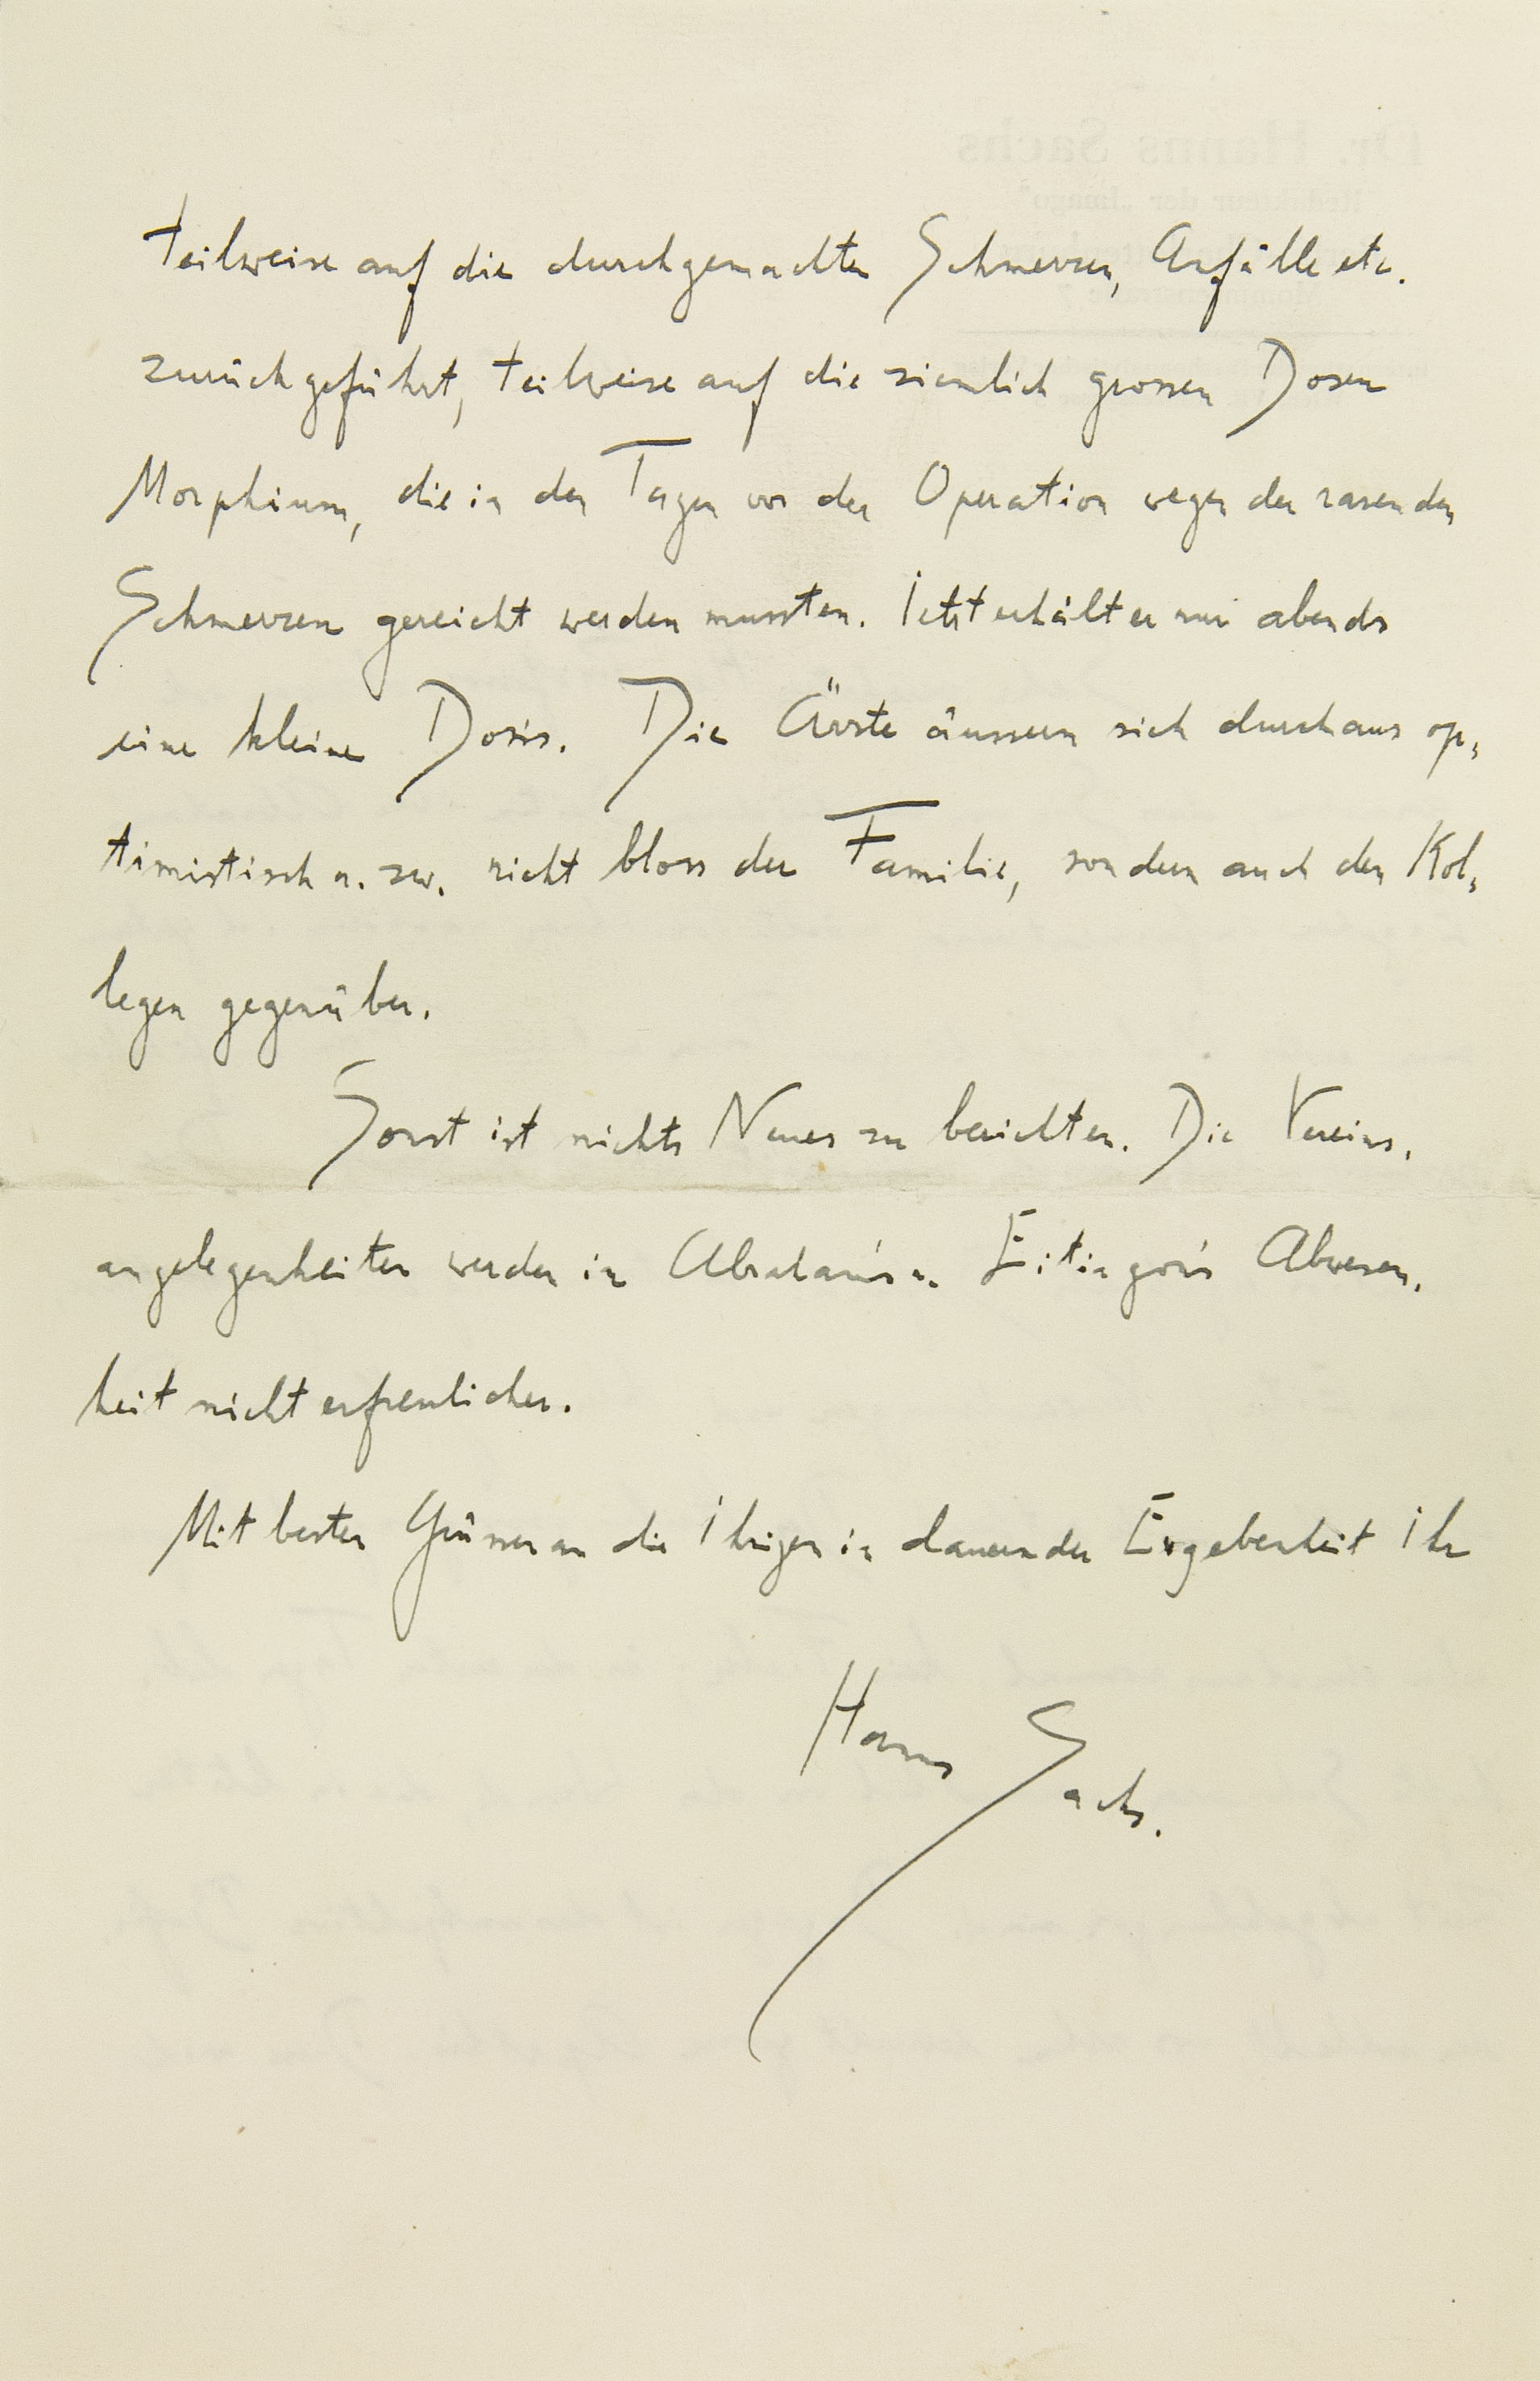 teilweise auf die durchgemachten Schmerzen, Anfälle etc.
zurückgeführt, teilweise auf die ziemlich grossen Dosen
Morphium, die in den Tagen vor der Operation wegen der rasenden
Schmerzen gereicht werden mussten. Jetzt erhält er nur abends
eine kleine Dosis. Die Ärzte äussern sich durchaus op-
timistisch u. zw. nicht bloss der Familie, sondern auch den Kol-
legen gegenüber.
Sonst ist nichts Neues zu berichten. Die Vereins-
angelegenheiten werden in Abraham's u. Eitingon's Abwesen-
heit nicht erfreulicher.
Mit besten Grüssen an die Ihrigen in dauernder Ergebenheit Ihr
Hanns Sachs.